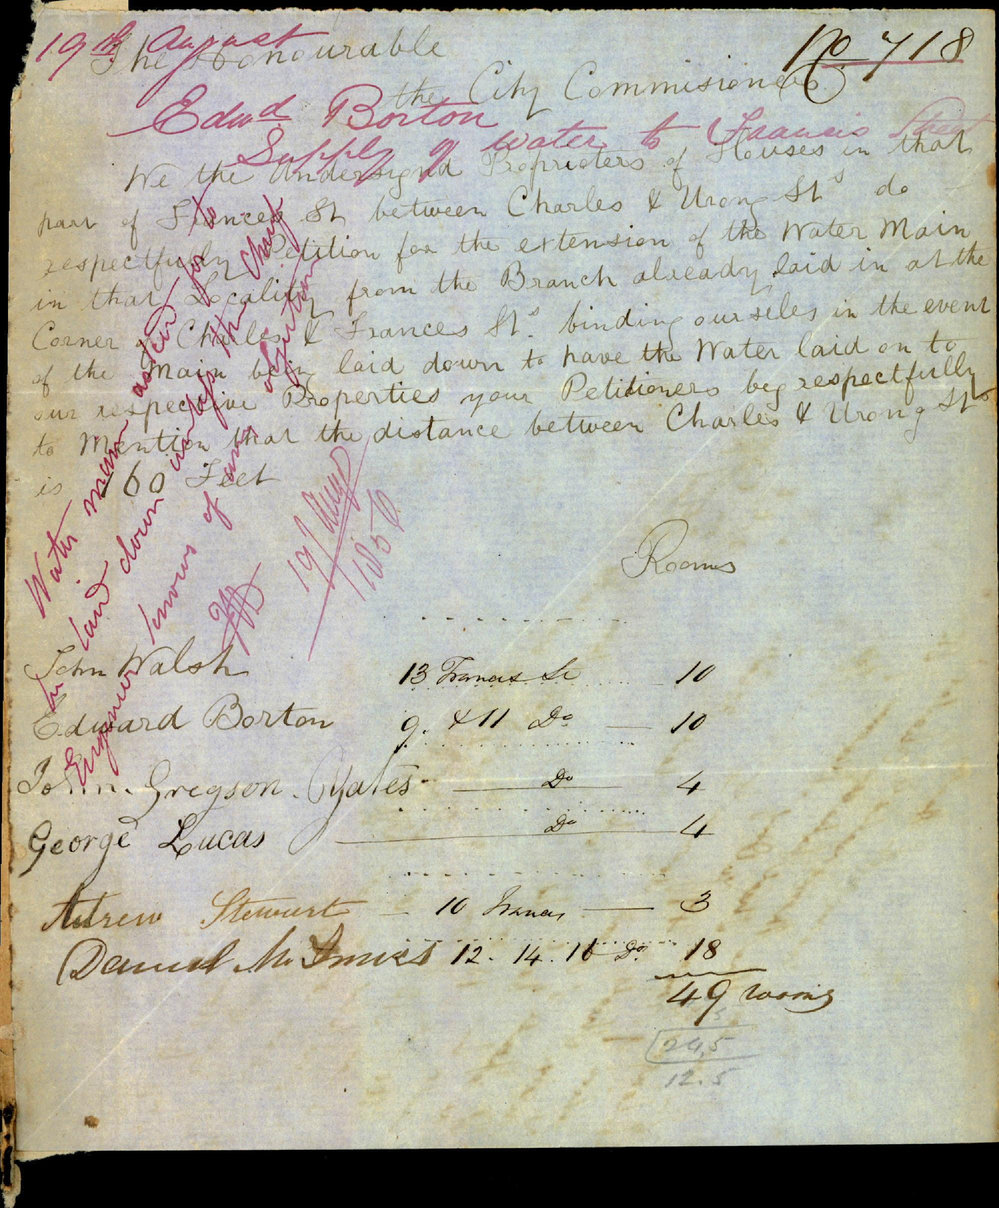 19th August
No. 718
The Honourable
the City Commisioners
Edwd Borton
Supply of water to Francis Street
We the Undersignd Proprieters of Houses in that
part of Frances St between Charles & Urong Sts do
respectfully Petition for the extension of the Water Main
in that Locality from the Branch already laid in at the
Corner of Charles & Frances Sts. binding ourselves in the event
of the Main being laid down to have the Water laid on to
our respective Properties your Petitioners beg respectfully
to Mention that the distance between Charles & Urong Sts
is 160 Feet
Water main asked for to
be laid down unless the Chief
Engineer knows of any objection
19/Aug
1856
Rooms
John Walsh 13 Francis St 10
Edward Borton 9. & 11 Do — 10
John Gregson Yates — Do — 4
George Lucas — Do — 4
Andrew Stewart — 10 Francis — 3
Daniel McInnes 12. 14. 16 Do 18
49 rooms
24,5
12.5